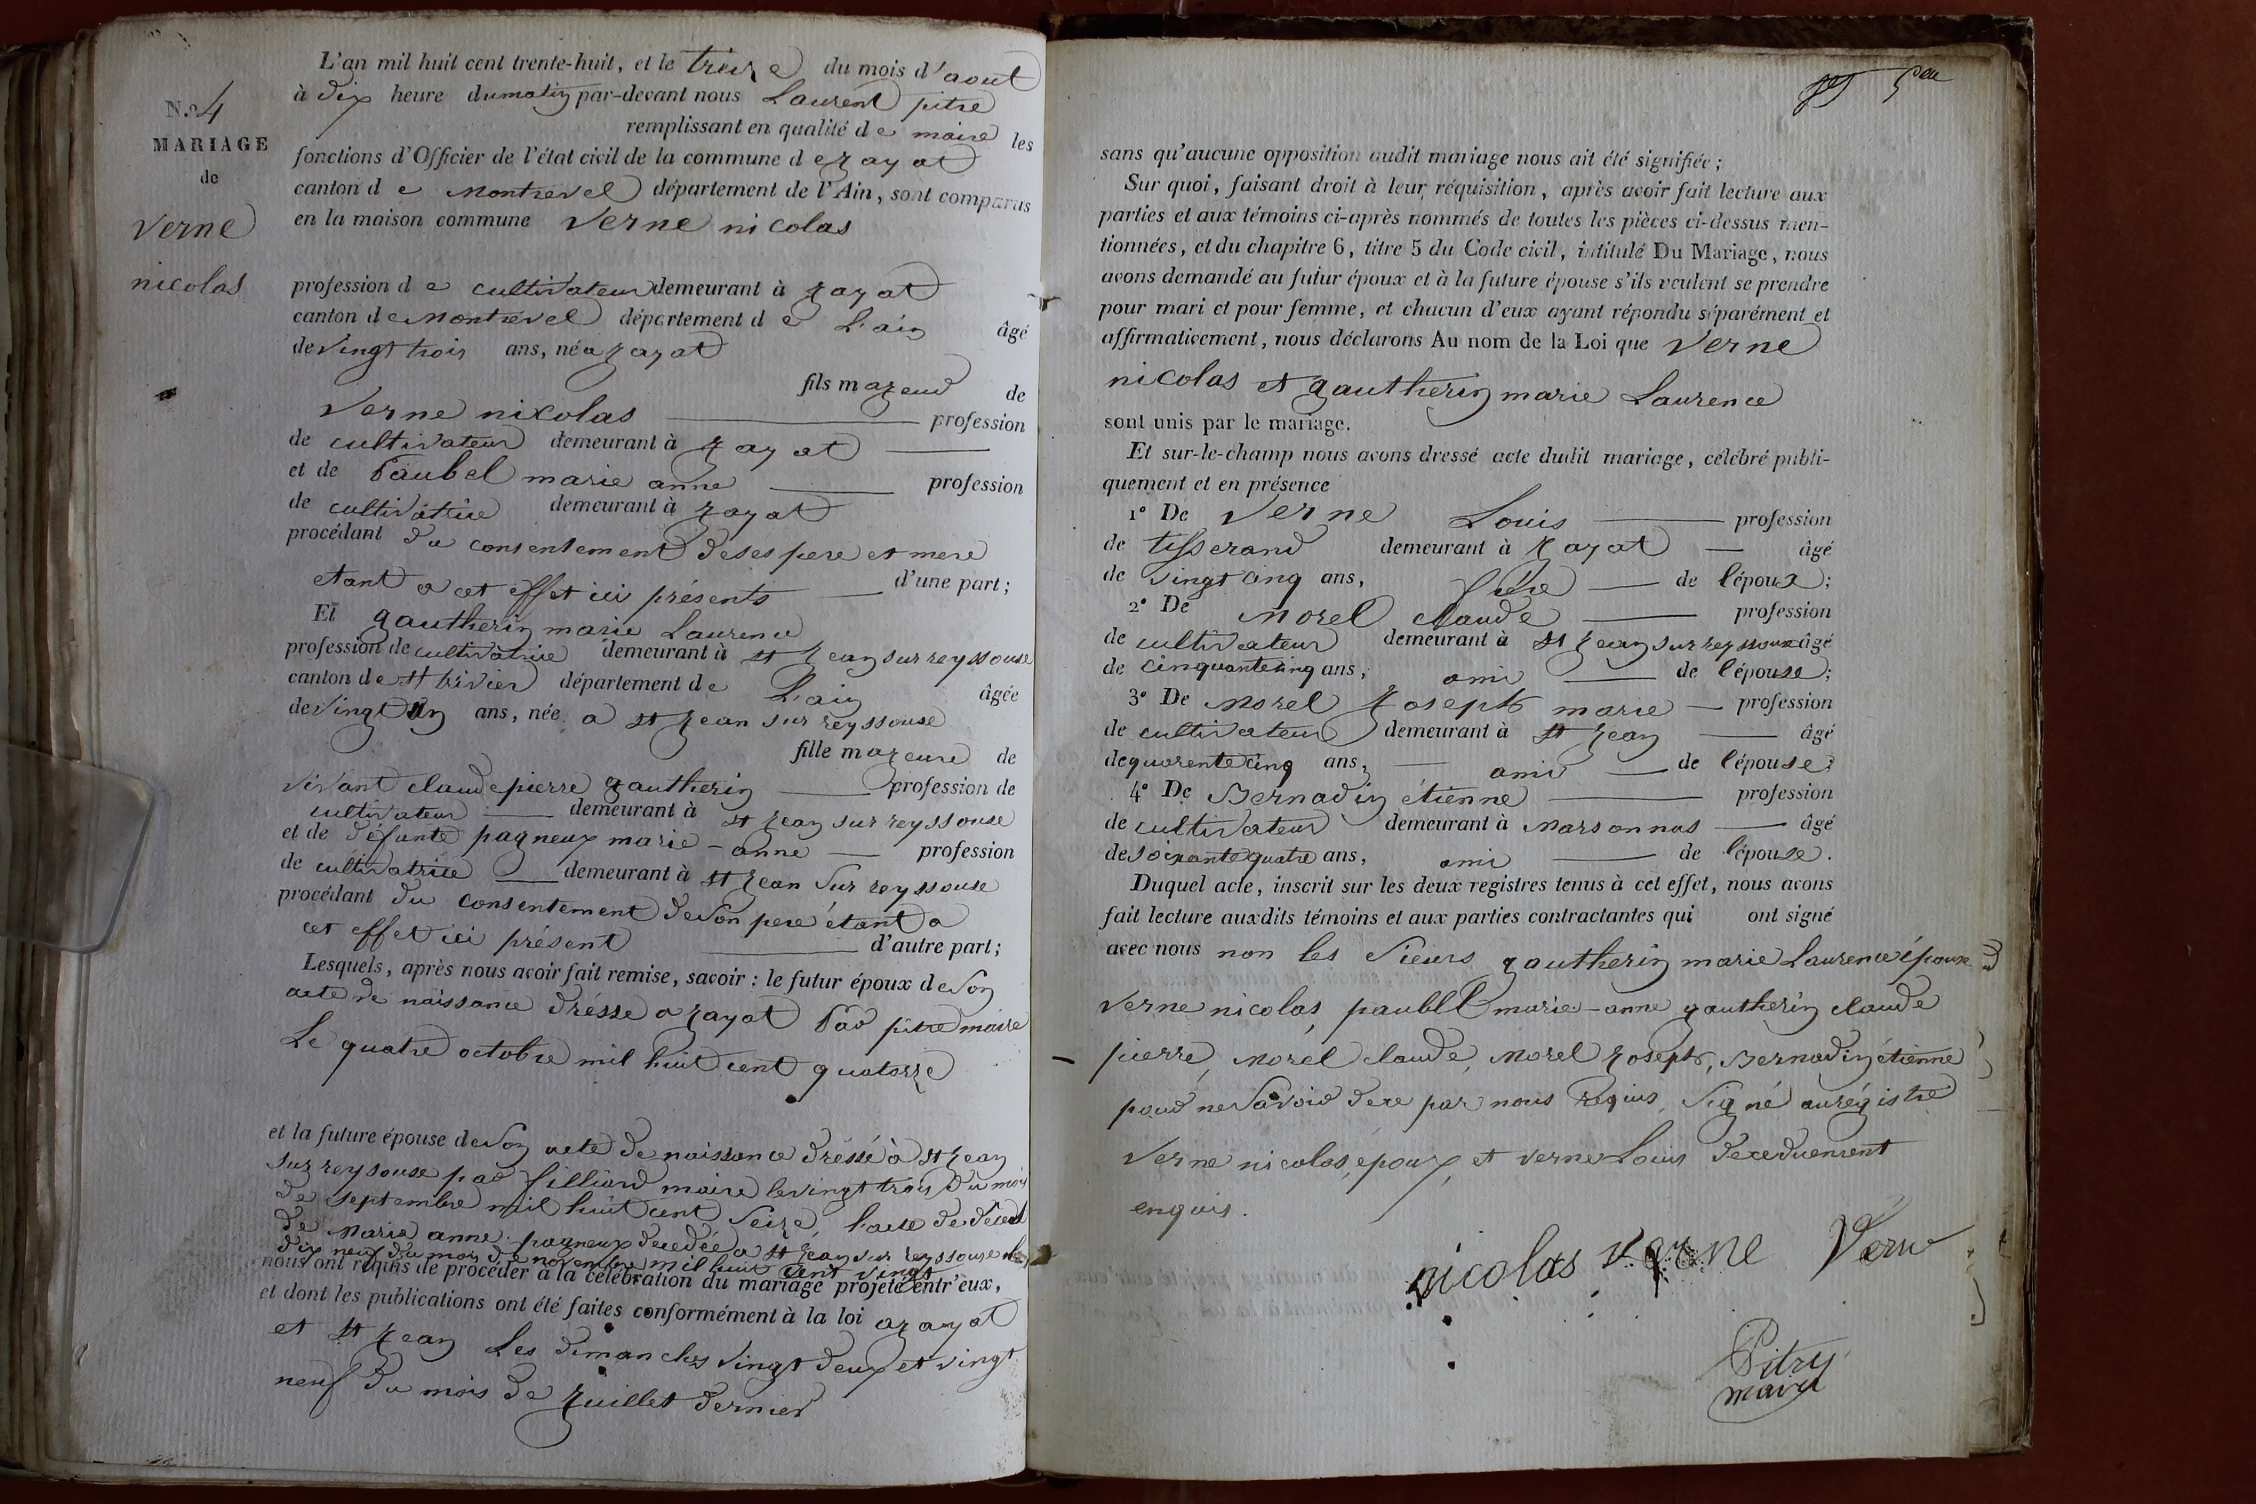 N.° 4
MARIAGE
de
Verne
nicolas
L'an mil huit cent trente-huit, et le treize du mois d'aout
à dix heure du matin par-devant nous Laurent pitre
remplissant en qualité de maire les
fonctions d'Officier de l'état civil de la commune de jayat
canton de Montrevel département de l'Ain, sont comparus
en la maison commune Verne nicolas
profession de cultivateur demeurant à jayat
canton de Montrevel département de L'ain âgé
de vingt trois ans, né a jayat
fils majeur de
Verne nixolas profession
de cultivateur demeurant à jayat
et de paubel marie anne profession
de cultivatrice demeurant à jayat
procédant du consentement de ses pere et mere
etant a cet effet ici présents d'une part;
Et gautherin marie Laurence
profession de cultivatrice demeurant à st jean sur reyssouse
canton de st trivier département de L'ain âgée
de vingt un ans, née a st jean sur reyssouse
fille majeure de
vivant claude pierre gautherin profession de
cultivateur demeurant à st jean sur reyssouse
et de défunte pagneux marie-anne profession
de cultivatrice demeurant à st jean sur reyssouse
procédant du consentement de son pere étant a
cet effet ici présent d'autre part;
Lesquels, après nous avoir fait remise, savoir: le futur époux de son
acte de naissance dréssé a jayat par pitre maire
Le quatre octobre mil huit cent quatorze
et la future épouse de son acte de naissance dréssé à st jean
sur reysouse par filliard maire le vingt trois du mois
de septembre mil huit cent seize, l'acte de décet
de Maria anne pagneux decedée a st jean sur reyssouse le
dix neuf du mois de novembre mil huit cent vingt
nous ont requis de procéder à la célébration du mariage projeté entr'eux,
et dont les publications ont été faites conformément à la loi a jayat
et st jean Les dimanches vingt deux et vingt
neuf du mois de juillet dernier
sans qu'aucune opposition audit mariage nous ait été signifiée;
Sur quoi, faisant droit à leur réquisition, après avoir fait lecture aux
parties et aux témoins ci-après nommés de toutes les pièces ci-dessus men-
tionnées, et du chapitre 6, titre 5 du Code civil, intitulé Du Mariage, nous
avons demandé au futur époux et à la future épouse s'ils veulent se prendre
pour mari et pour femme, et chacun d'eux ayant répondu séparément et
affirmativement, nous déclarons Au nom de la Loi que Verne
nicolas et gautherin marie Laurence
sont unis par le mariage.
Et sur-le-champ nous avons dressé acte dudit mariage, célébré publi-
quement et en présence
1° De Verne Louis profession
de tisserand demeurant à jayat âgé
de vingt cinq ans, frére de l'époux;
2° De Morel claude profession
de cultivateur demeurant à st jean sur reyssouse âgé
de cinquante cinq ans, ami de l'épouse;
3° De Morel joseph marie profession
de cultivateur demeurant à st jean âgé
de quarente cinq ans, ami de l'épouse;
4° De Bernadin étienne profession
de cultivateur demeurant à Marsonnas âgé
de soixante quatre ans, ami de l'épouse.
Duquel acte, inscrit sur les deux registres tenus à cet effet, nous avons
fait lecture auxdits témoins et aux parties contractantes qui ont signé
avec nous non les sieurs gautherin marie Laurence épouse
Verne nicolas, paubll marie-anne gautherin claude
pierre, Morel claude, Morel joseph, Bernadin étienne
pour ne savoir dece par nous requis. Signé au régistre
Verne nicolas, époux, et verne Louis deceduement
enquis.
nicolas verne Verne
Pitre
maire